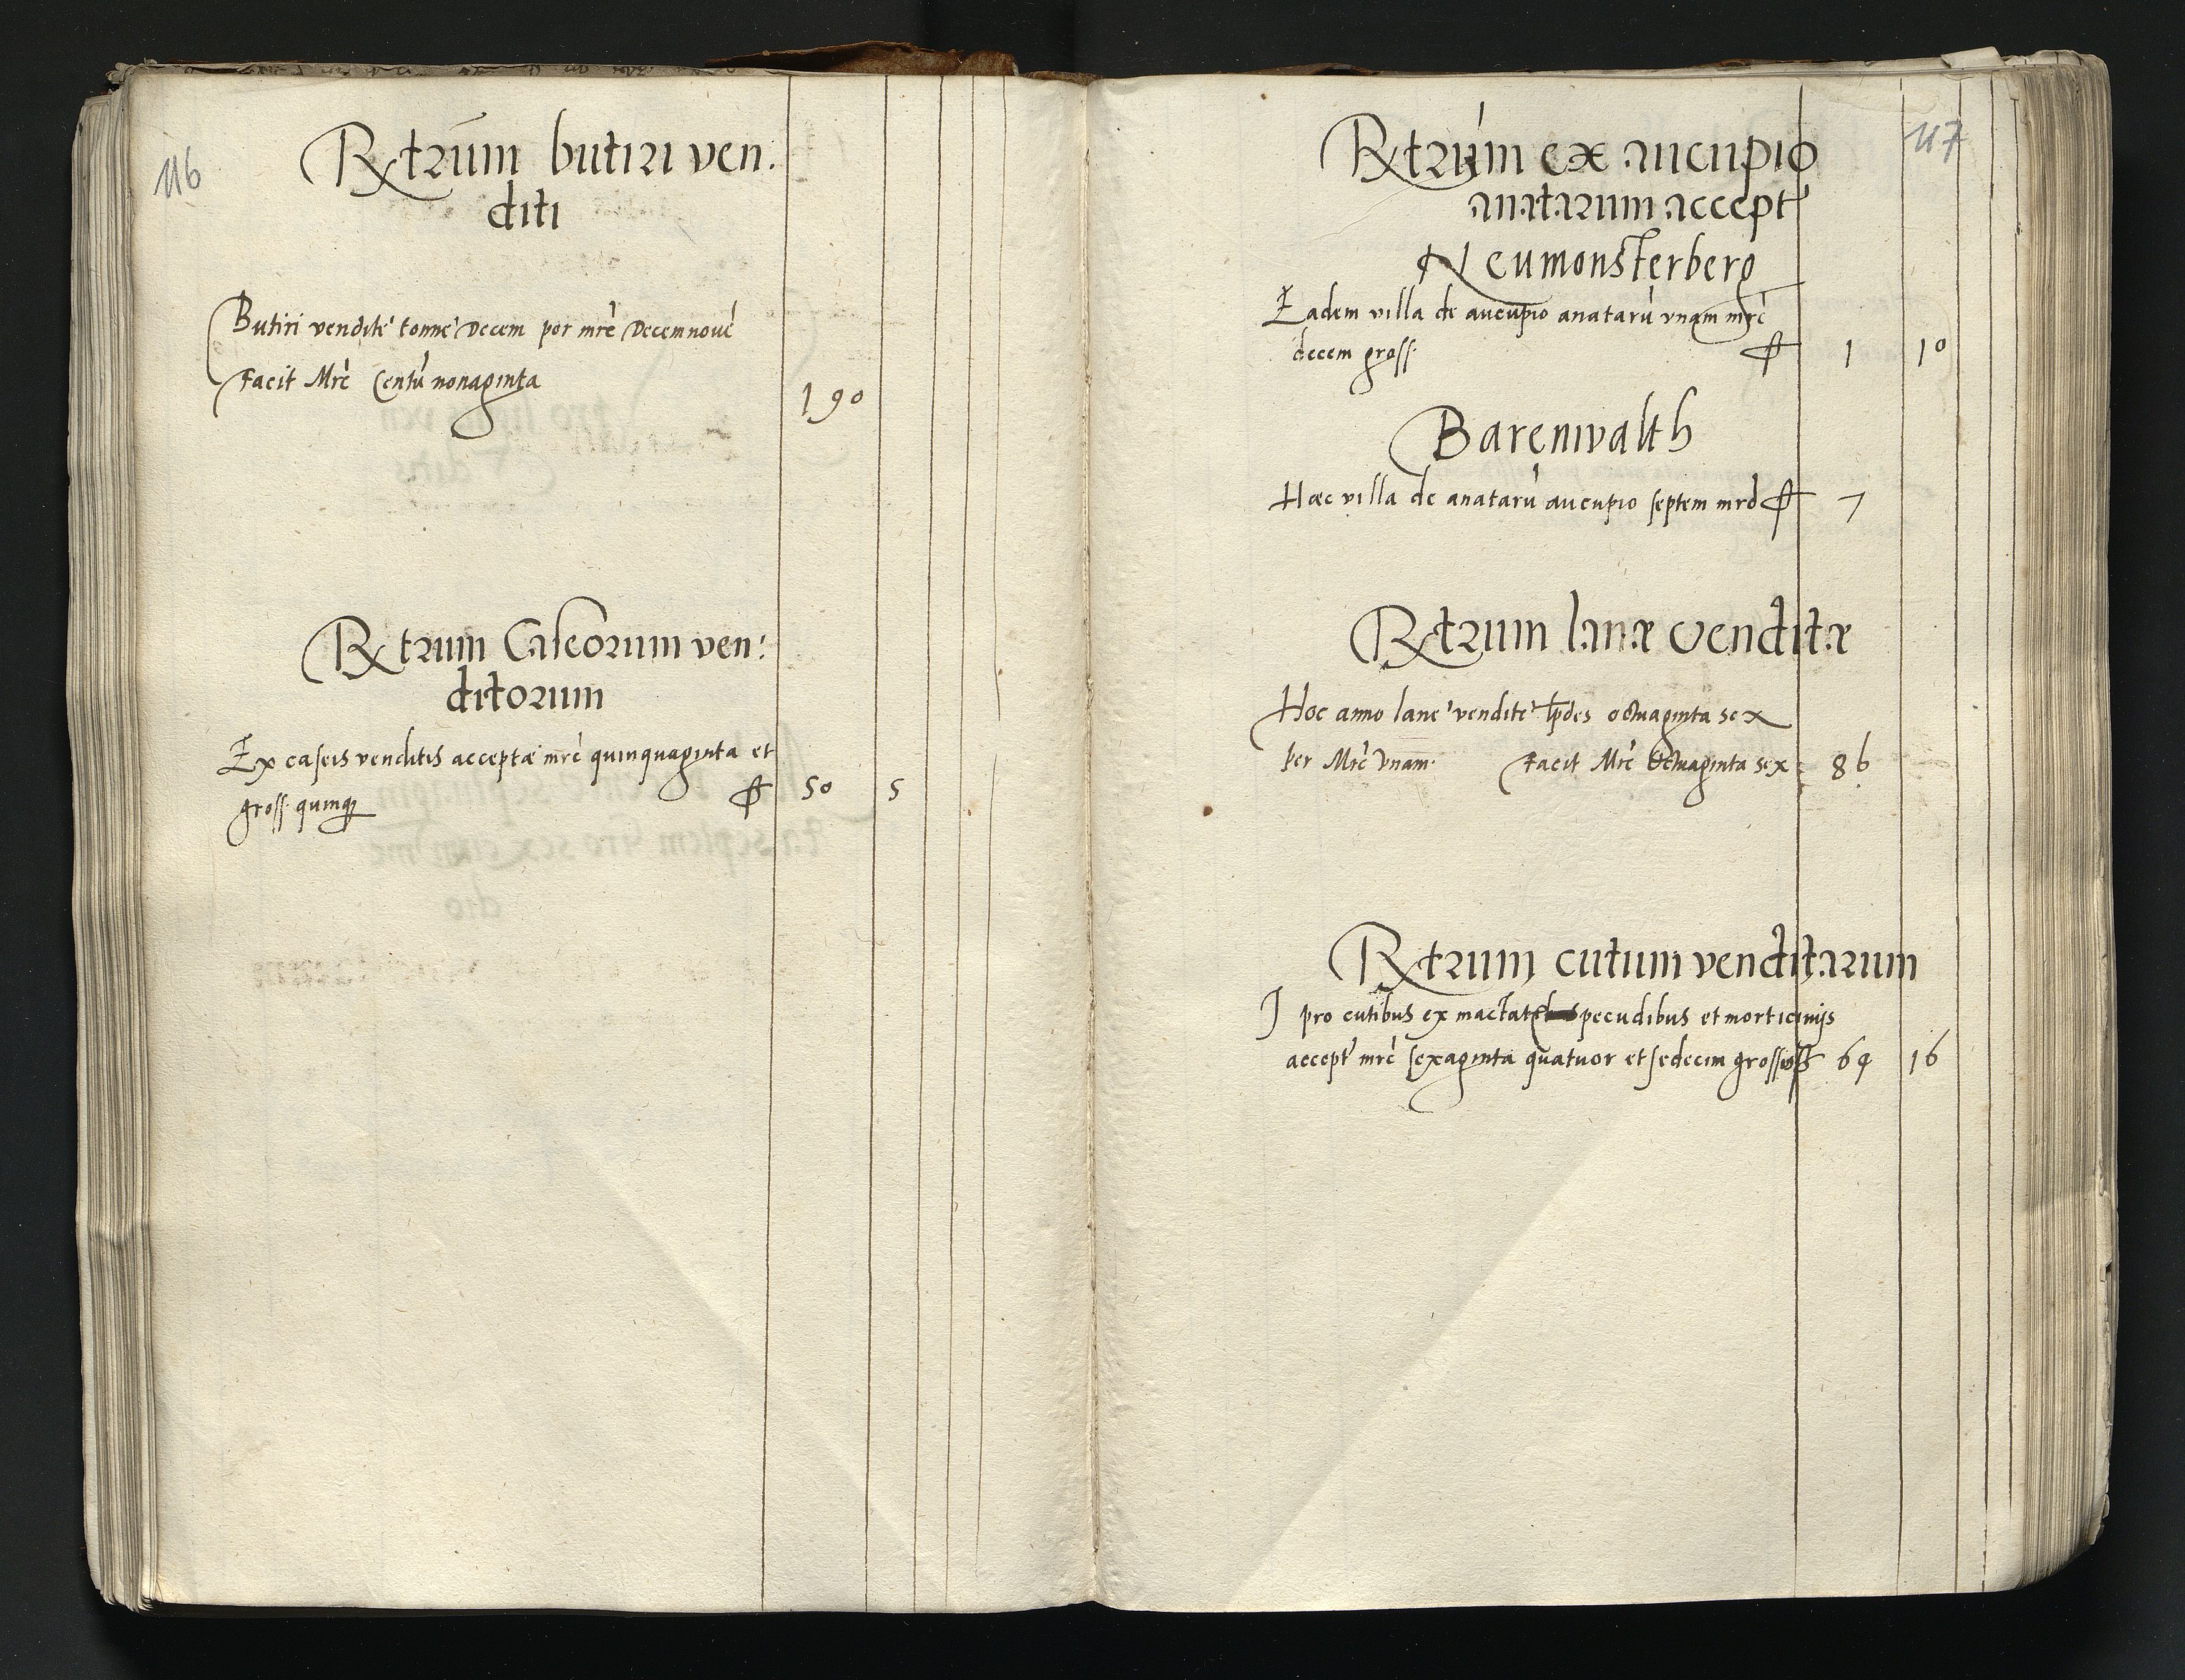 116
Rxtrum butiri ven.
diti
Butiri venditè tonnè Decem por mrč Decemnovē
Facit Mrč Centū nonaginta 190
Rxtrum Caseorum ven:
ditorum
Ex caseis venditis acceptæ mrč quinquaginta et
gross. quinq₃ ff 50 5
117
Rxtrum ex aucupio
anatarum accept'
Neumonsterberg
Eadem villa de aucupio anatarū vnam mrč
decem gross. ff 1 10
Barenwalth
Hæc villa de anatarū aucupio septem mrč ff 7
Rxtrum lanæ venditæ
Hoc anno lane' vendite' lpdes octuaginta sex
per Mrč Vnam. Facit Mrč Octuaginta sex 86
Rxtrum cutum venditarum
J pro cutibus ex mactat pecudibus et morticinijs
accept' mrč sexaginta quatuor et sedecim grossos ff 64 16